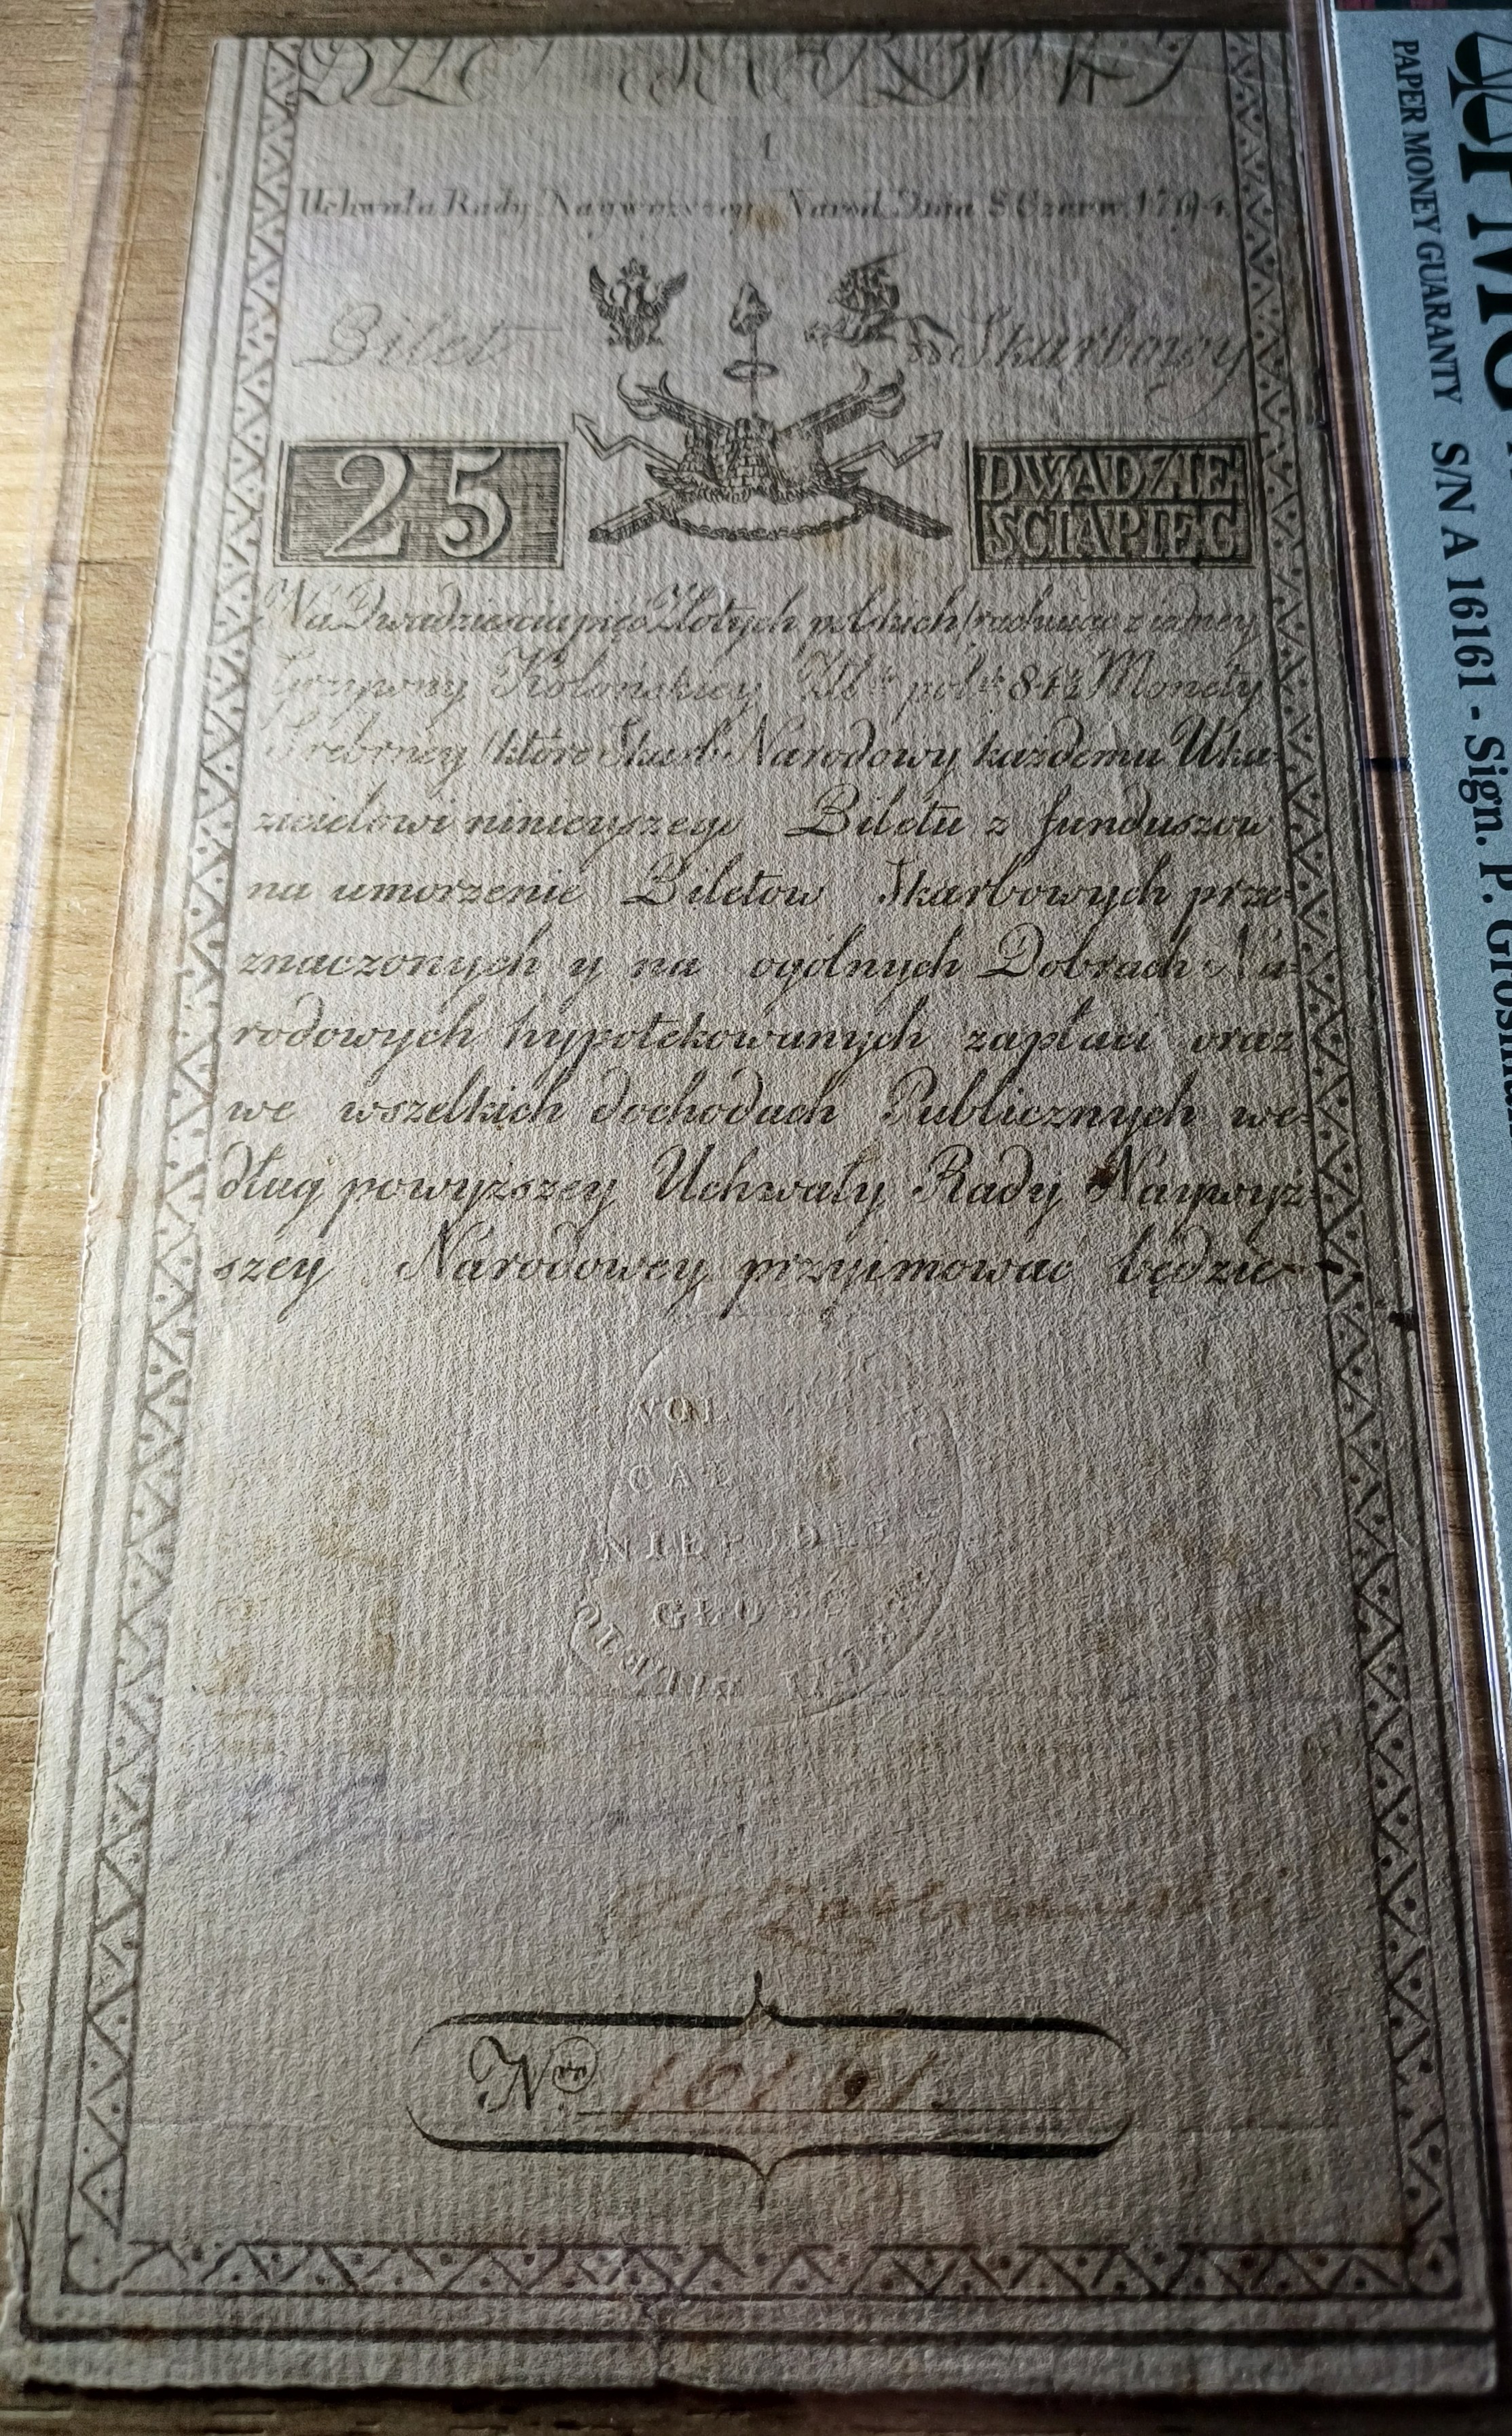 Uchwała Rady Naywyższey Narod. Dnia 8 Czerw. 1794.
Bilet Skarbowy
25
DWADZIE-
SCIAPIĘC
Na Dwadzieścia pięć Złotych polskich (rachuiąc z iedney
Grzywny Kolońskiey Zł. pol. 84½ Monety
Srebrney) które Skarb Narodowy każdemu Uka-
zicielowi ninieyszego Biletu z funduszow
na umorzenie Biletow Skarbowych prze-
znaczonych y na ogolnych Dobrach Na-
rodowych hypotekowanych zapłaci oraz
we wszelkich dochodach Publicznych we-
dług powyższey Uchwały Rady Naywyż-
szey Narodowey przyimować będzie
WOL
CAŁ
NIEPODLE
GŁOS
BILETO
Nro 16161
PMG
PAPER MONEY GUARANTY
S/N A 16161 - Sign. P. Grosma